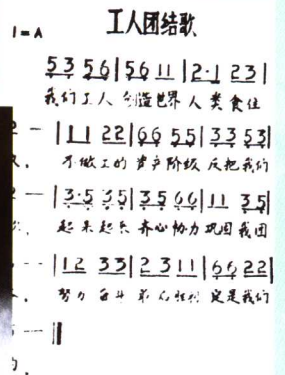 工人团结歌
1=A
53 56|56 11|2·1 23|
我们工人 创造世界 人类食住
2 — |11 22|66 55|33 53|
不做工的 资产阶级 反把我们
2 — |3·5 35|35 66|11 35|
起来起来 齐心协力 巩固我团
— |12 33|23 11|66 22|
努力奋斗 最后胜利 定是我们
— — ‖